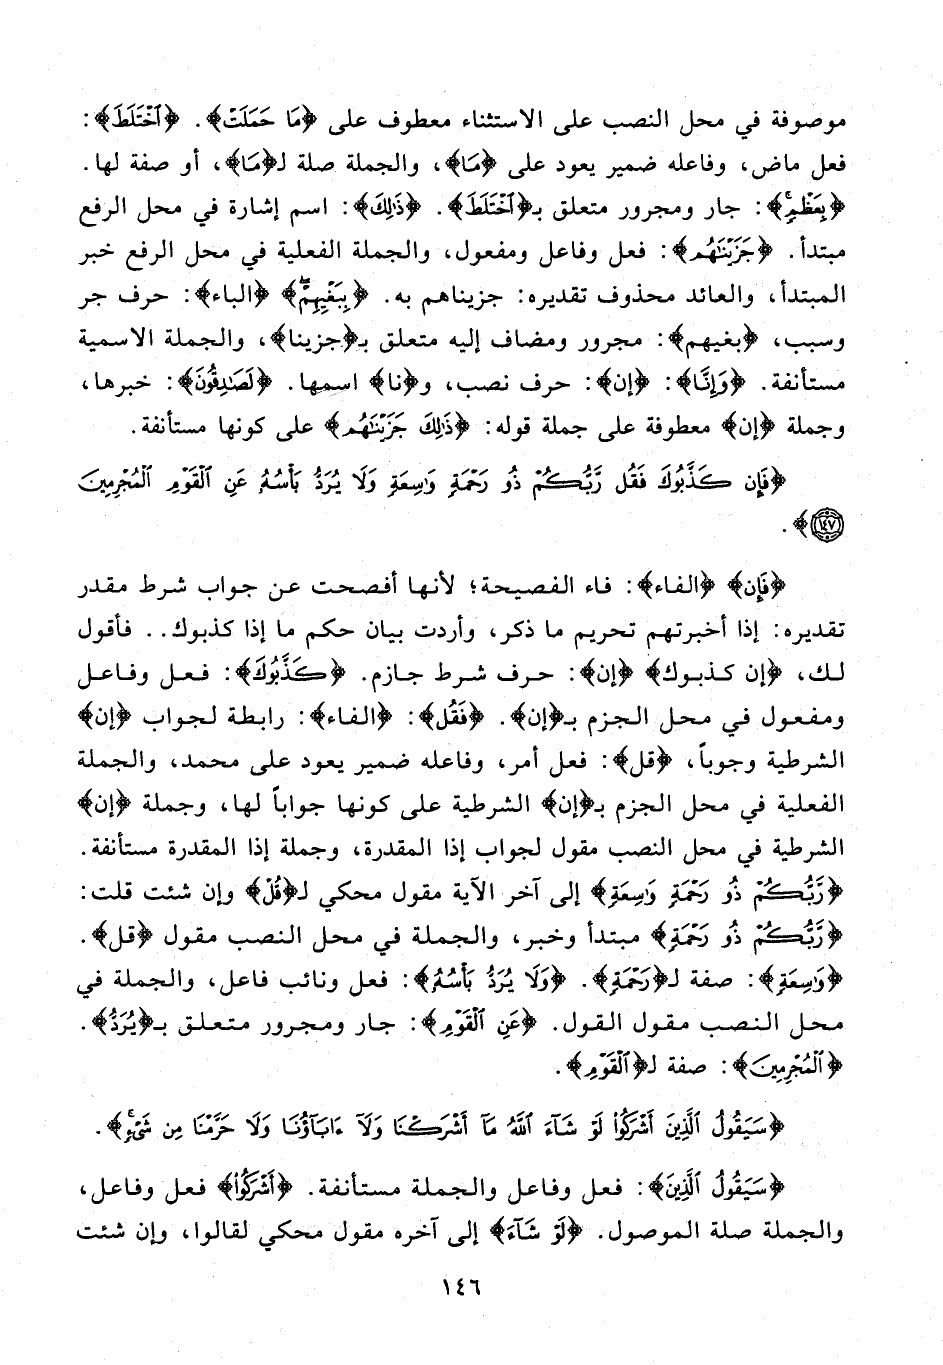 موصوفة في محل النصب على الاستثناء معطوف على ﴿مَا حَمَلَتْ﴾. ﴿ٱخْتَلَطَ﴾:
فعل ماض، وفاعله ضمير يعود على ﴿مَا﴾، والجملة صلة لـ﴿مَا﴾، أو صفة لها.
﴿بِعَظْمٍ﴾: جار ومجرور متعلق بـ﴿ٱخْتَلَطَ﴾. ﴿ذَٰلِكَ﴾: اسم إشارة في محل الرفع
مبتدأ. ﴿جَزَيْنَٰهُم﴾: فعل وفاعل ومفعول، والجملة الفعلية في محل الرفع خبر
المبتدأ، والعائد محذوف تقديره: جزيناهم به. ﴿بِبَغْيِهِمْ﴾ ﴿الباء﴾: حرف جر
وسبب، ﴿بغيهم﴾: مجرور ومضاف إليه متعلق بـ﴿جزينا﴾، والجملة الاسمية
مستأنفة. ﴿وَإِنَّا﴾: ﴿إن﴾: حرف نصب، و﴿نا﴾ اسمها. ﴿لَصَٰدِقُونَ﴾: خبرها،
وجملة ﴿إن﴾ معطوفة على جملة قوله: ﴿ذَٰلِكَ جَزَيْنَٰهُم﴾ على كونها مستأنفة.
﴿فَإِن كَذَّبُوكَ فَقُل رَّبُّكُمْ ذُو رَحْمَةٍ وَٰسِعَةٍ وَلَا يُرَدُّ بَأْسُهُۥ عَنِ ٱلْقَوْمِ ٱلْمُجْرِمِينَ
١٤٧﴾.
﴿فَإِن﴾ ﴿الفاء﴾: فاء الفصيحة؛ لأنها أفصحت عن جواب شرط مقدر
تقديره: إذا أخبرتهم تحريم ما ذكر، وأردت بيان حكم ما إذا كذبوك.. فأقول
لك، ﴿إن كذبوك﴾ ﴿إن﴾: حرف شرط جازم. ﴿كَذَّبُوكَ﴾: فعل وفاعل
ومفعول في محل الجزم بـ﴿إن﴾. ﴿فَقُل﴾: ﴿الفاء﴾: رابطة لجواب ﴿إن﴾
الشرطية وجوباً، ﴿قل﴾: فعل أمر، وفاعله ضمير يعود على محمد، والجملة
الفعلية في محل الجزم بـ﴿إن﴾ الشرطية على كونها جواباً لها، وجملة ﴿إن﴾
الشرطية في محل النصب مقول لجواب إذا المقدرة، وجملة إذا المقدرة مستأنفة.
﴿رَّبُّكُمْ ذُو رَحْمَةٍ وَٰسِعَةٍ﴾ إلى آخر الآية مقول محكي لـ﴿قُلْ﴾ وإن شئت قلت:
﴿رَّبُّكُمْ ذُو رَحْمَةٍ﴾ مبتدأ وخبر، والجملة في محل النصب مقول ﴿قل﴾.
﴿وَٰسِعَةٍ﴾: صفة لـ﴿رَحْمَةٍ﴾. ﴿وَلَا يُرَدُّ بَأْسُهُۥ﴾: فعل ونائب فاعل، والجملة في
محل النصب مقول القول. ﴿عَنِ ٱلْقَوْمِ﴾: جار ومجرور متعلق بـ﴿يُرَدُّ﴾.
﴿ٱلْمُجْرِمِينَ﴾: صفة لـ﴿ٱلْقَوْمِ﴾.
﴿سَيَقُولُ ٱلَّذِينَ أَشْرَكُوا۟ لَوْ شَآءَ ٱللَّهُ مَآ أَشْرَكْنَا وَلَآ ءَابَآؤُنَا وَلَا حَرَّمْنَا مِن شَىْءٍ﴾.
﴿سَيَقُولُ ٱلَّذِينَ﴾: فعل وفاعل والجملة مستأنفة. ﴿أَشْرَكُوا۟﴾ فعل وفاعل،
والجملة صلة الموصول. ﴿لَوْ شَآءَ﴾ إلى آخره مقول محكي لقالوا، وإن شئت
١٤٦